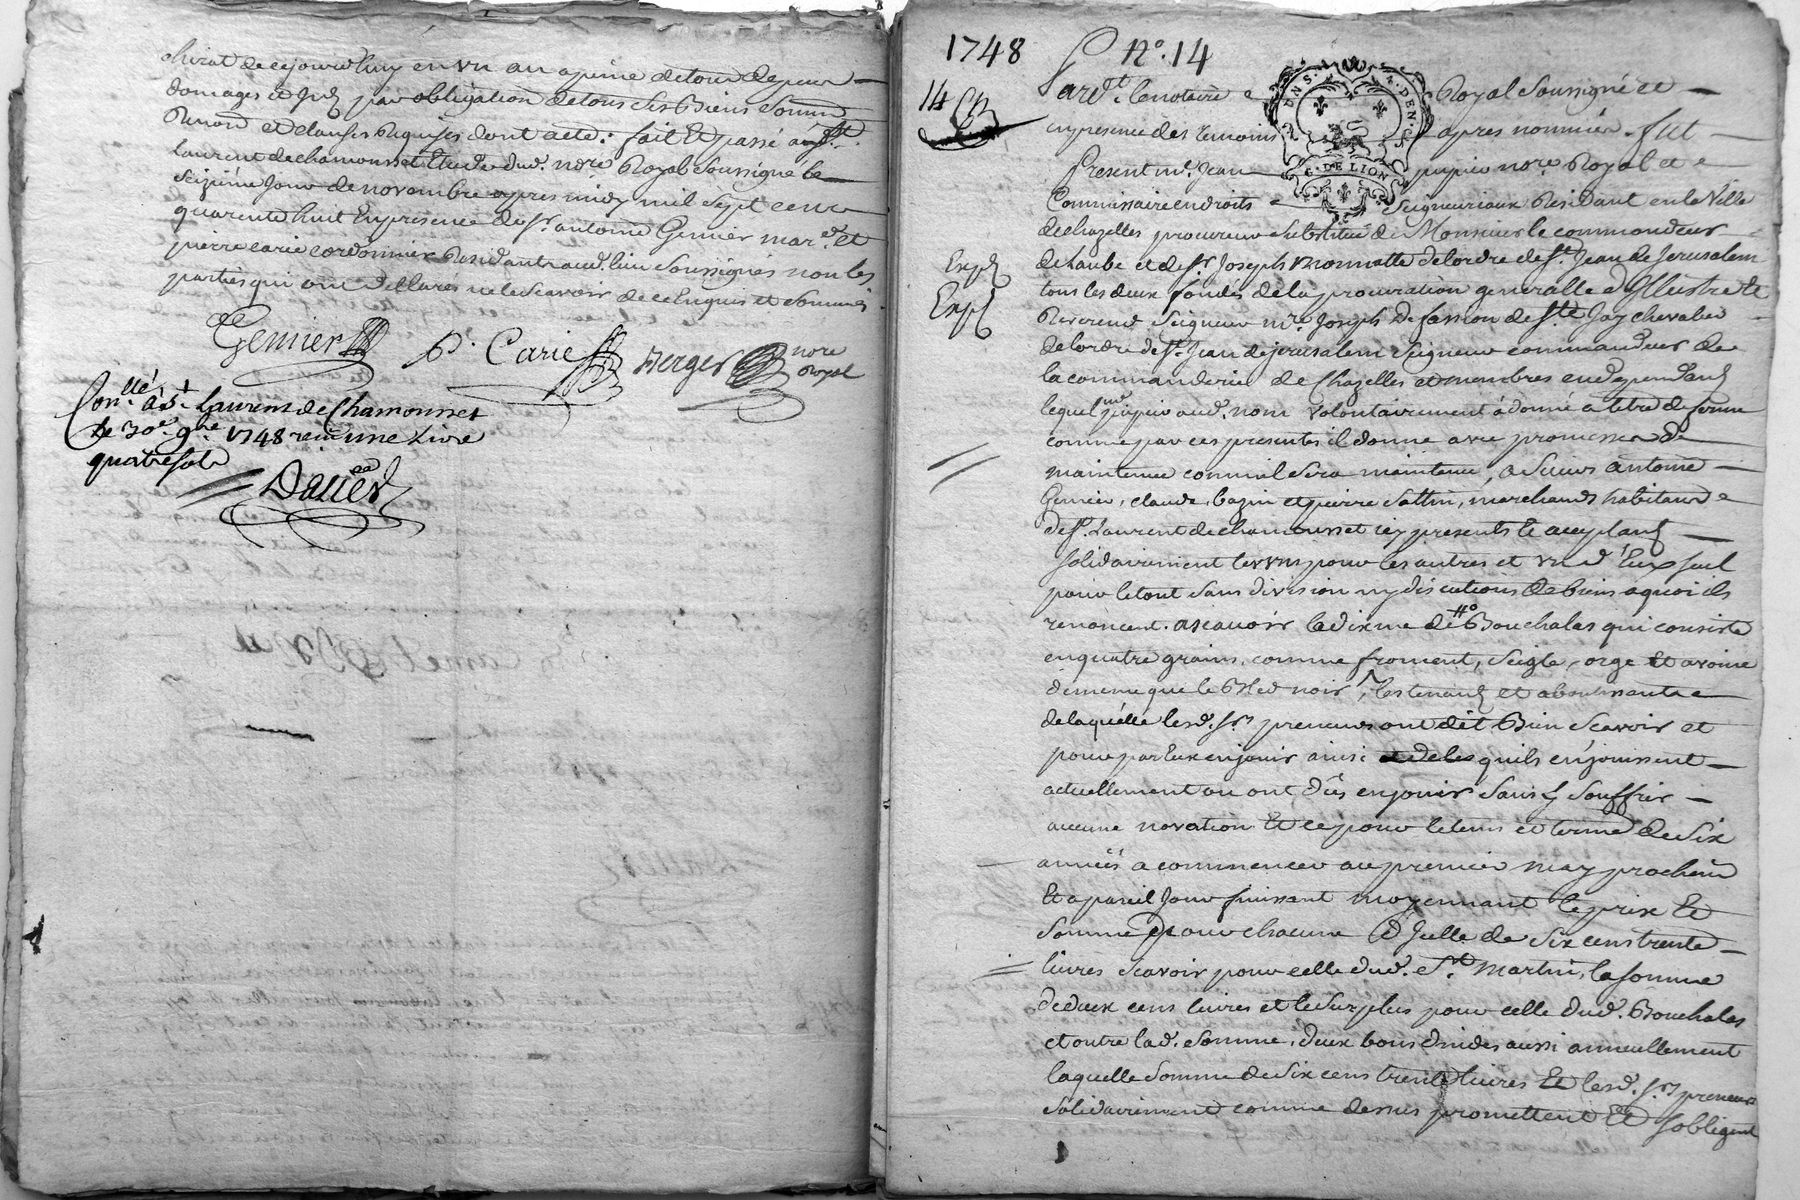 de cejourd'huy en un an a peine de tous depens
domages et Int par obligation de tous ses Biens Soum
Renon et clauses Requises dont acte : fait Et passé audt St
Laurent de chamousset Etude dud. nore Royal Soussigné le
Seizieme Jour de novembre apres midy mil Sept cent
quarente huit En presence de Sr. antoine Gemier mard. et
pierre carié cordonnier Residants aud. lieu Soussignés non les
parties qui ont declarés ne le Scavoir de ce Enquis et Sommés
Gemier P. Carié Berger nore
Royal
Conllé à St Laurens de Chamousset
Le 30e 9bre 1748 reçu une Livre
quatre sols
1748 N°. 14
14
Pardt. le notaire Royal Soussigné et
en presence des temoins apres nommés fut
DEN.
G. DE LION
Present mr. Jean pupier nore. Royal et
Commissaire en droits Seigneuriaux Residant en la Ville
de chazelles procureur Substitué de Monsieur le commandeur
de Laube et de Sr. Joseph Monnatte de lordre de St. Jean de Jerusalem
Expd
Expd
tous les deux fondés de la procuration generalle d'Illustre Et
Reverend Seigneur mre. Joseph De fassion de Ste Jay chevalier
de Lordre de St. Jean de jerusalem Seigneur commandeur de
la commanderie de Chazelles et membres en dependants
lequel mr pupier aud. nom volontairement à donné a titre de ferme
comme par ces presentes il donne avec promesse de
maintenue comme il sera maintenue, a Sieurs antoine
Gemier, claude bazin et pierre Sattin, marchands habitans
de St. Laurent de chamousset icy presents Et acceptants
Solidairement les uns pour les autres et un d'Eux seul
pour le tout Sans division ny discutions de biens a quoi ils
renoncent. ascavoir la dixme de Bouchalas qui consiste
en quatre grains, comme froment, Seigle, orge Et avoine
de meme que le Bled noir, les tenants et aboutissants
de laquélle lesd. Srs preneurs ont dit Bien Scavoir et
pour par Eux en jouir ainsi quils en jouissent
actuellement ou ont dûs en jouir Sans y Souffrir
aucune novation Et ce pour le tems et terme de Six
années a commencer au premier may prochain
Et a pareil Jour finissant moyennant le prix Et
Somme pour chacune d'Icelle de Six cens trente
livres Scavoir pour celle dud. St. Martin, la somme
de deux cens livres et le Surplus pour celle dud. Bouchalas
et outre lad. Somme, deux bons dindes aussi annuellement
laquelle Somme de Six cens trente livres Et lesd. Srs preneurs
Solidairement comme dessus promettent Et Sobligent